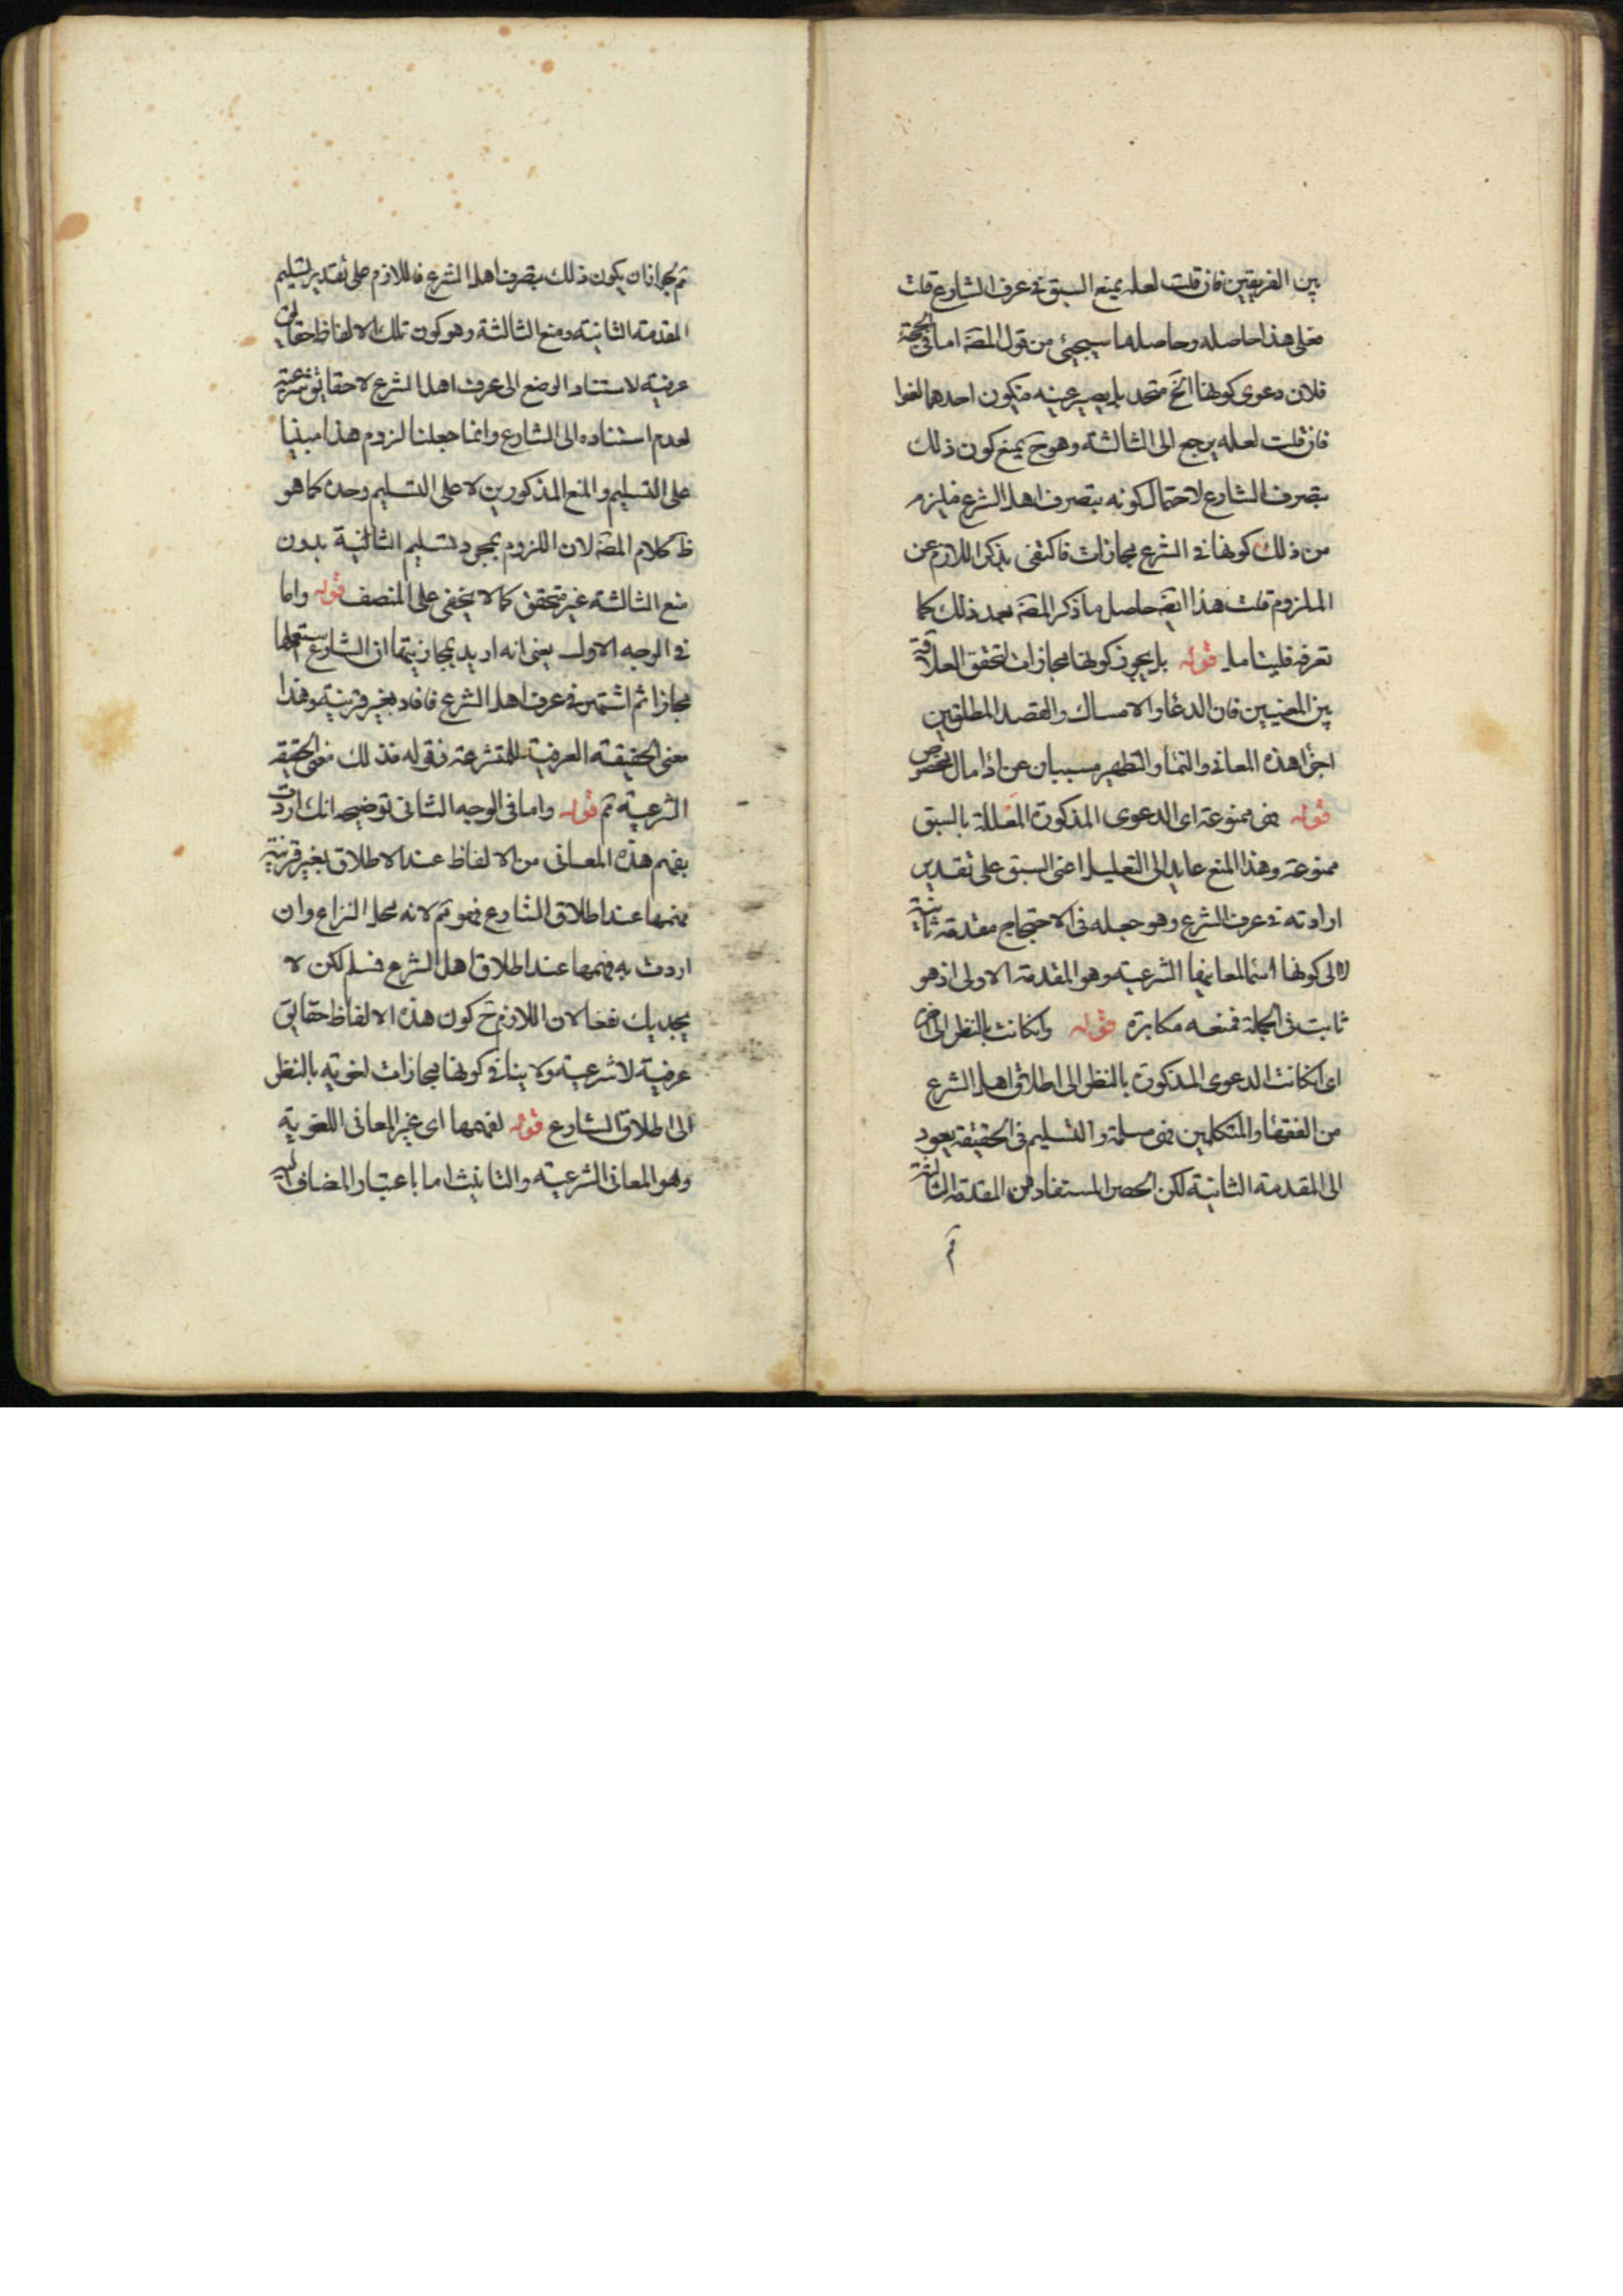 بين الفريقين فان قلت لعله يمنع السبق في عرف الشارع قلت
فعلى هذا حاصله وحاصل ما سيجيئ من قول المصَه اما في الحجة
فلان دعوى كونها الخ متحد بل يصير عينه فيكون احدهما لغوا
فان قلت لعله يرجع الى الثالثة وهو حَ يمنع كون ذلك
بتصرف الشارع لاحتمال كونه بتصرف اهل الشرع فيلزم
من ذلك كونها في الشرع مجازات فاكتفى بذكر اللازم عن
الملزوم قلت هذا ايضَ حاصل ما ذكر المصَه بعد ذلك كما
تعرفه فليتامل قوله بل يجوز كونها مجازات لتحقق العلاقة
بين المعنيين فان الدعا والامساك والقصد المطلقين
اجزا هذه المعاني والنما والتطهير مسببان عن اذا مال المخصوص
قوله فهى ممنوعة اى الدعوى المذكورة المعللة بالسبق
ممنوعة وهذا المنع عايد الى التعليل اعنى السبق على تقدير
ارادته في عرف الشرع وهو جعله في الاحتجاج مقدمة ثانية
لا الى كونها اسما لمعانيها الشرعية وهو المقدمة الاولى اذ هو
ثابت في الجملة فمنعه مكابرة قوله وان كانت بالنظر الى آخره
اى ان كانت الدعوى المذكورة بالنظر الى اطلاق اهل الشرع
من الفقها والمتكلمين فهى مسلمة والتسليم في الحقيقة يعود
الى المقدمة الثانية لكن الحصر المستفاد من المقدمة الثالثة
ثم
ثم لجواز ان يكون ذلك بتصرف اهل الشرع فاللازم على تقدير تسليم
المقدمة الثانية ومنع الثالثة وهو كون تلك الالفاظ حقايق
عرفية لاستناد الوضع الى عرف اهل الشرع لا حقايق شرعية
لعدم استناده الى الشارع وانما جعلنا لزوم هذا مبنيا
على التسليم والمنع المذكورين لا على التسليم وحده كما هو
ظَ كلام المصَه لان اللزوم بمجرد تسليم الثانية بدون
منع الثالثة غير متحقق كما لا يخفى على المنصف قوله واما
في الوجه الاول يعنى انه اريد بمجازيتها ان الشارع استعملها
مجازا ثم اشتهرت في عرف اهل الشرع فافاد بغير قرينة وهذا
معنى الحقيقة العرفية للمتشرعة فقوله فذلك معنى الحقيقة
الشرعية ثم قوله واما في الوجه الثاني توضيحه انك اردت
بفهم هذه المعاني من الالفاظ عند الاطلاق بغير قرينة
فهمها عند اطلاق الشارع فهو ثم لانه محل النزاع وان
اردت به فهمها عند اطلاق اهل الشرع فسلم لكن لا
يجديك نفعا لان اللازم حَ كون هذه الالفاظ حقايق
عرفية لا شرعية ولا ينافي كونها مجازات لغوية بالنظر
الى اطلاق الشارع قوله لفهمها اى غير المعاني اللغوية
وهو المعاني الشرعية والتانيث اما باعتبار المضاف اليه